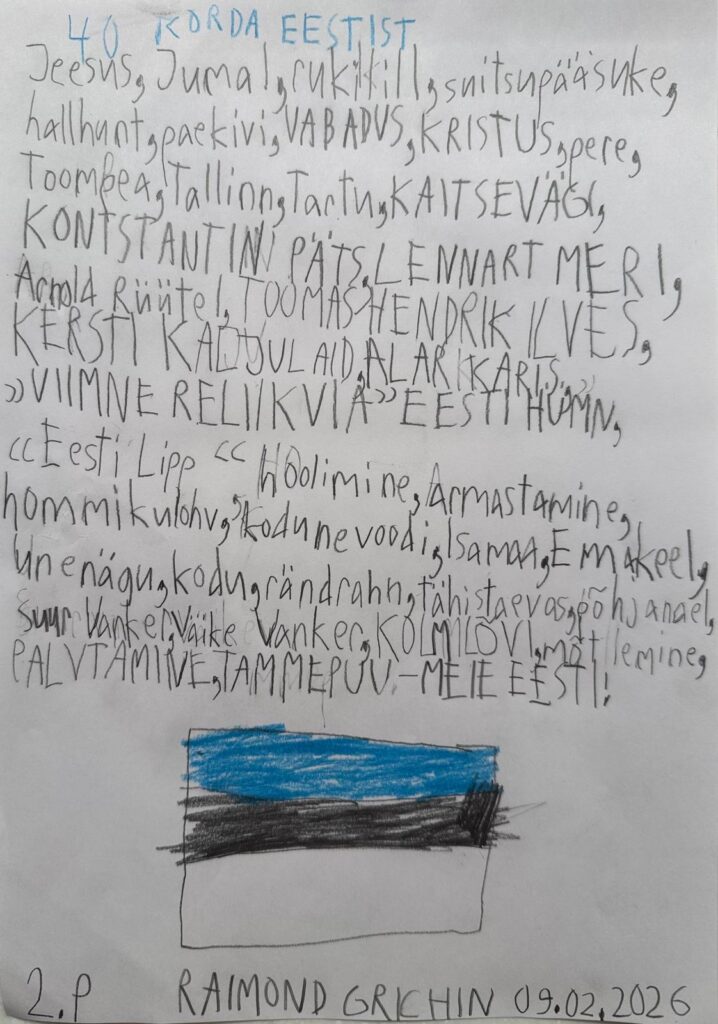 40 KORDA EESTIST
Jeesus, Jumal, rukkikill, suitsupääsuke,
hallhunt, paekivi, VABADUS, KRISTUS, pere,
Toompea, Tallinn, Tartu, KAITSEVÄGI,
KONTSTANTIN PÄTS, LENNART MERI,
Arnold Rüütel, TOOMAS HENDRIK ILVES,
KERSTI KALJULAID, ALAR KARIS,
»VIIMNE RELIIKVIA» EESTI HÜMN,
«Eesti Lipp « Hoolimine, Armastamine,
hommikulohv, kodune voodi, Isamaa, Emakeel,
unenägu, kodu, rändrahn, tähistaevas, põhjanael,
Suur Vanker, Väike Vanker, KOLMILÕVI, mõtlemine,
PALVTAMINE, TAMMEPUU - MEIE EESTI!
2.P RAIMOND GRICHIN 09.02.2026